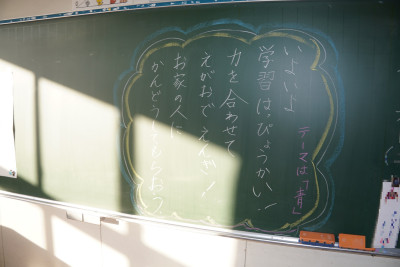 いよいよ
学習はっぴょうかい!
テーマは「青」
力を合わせて
えがおで えんぎ!
お家の人に
かんどうしてもらおう。